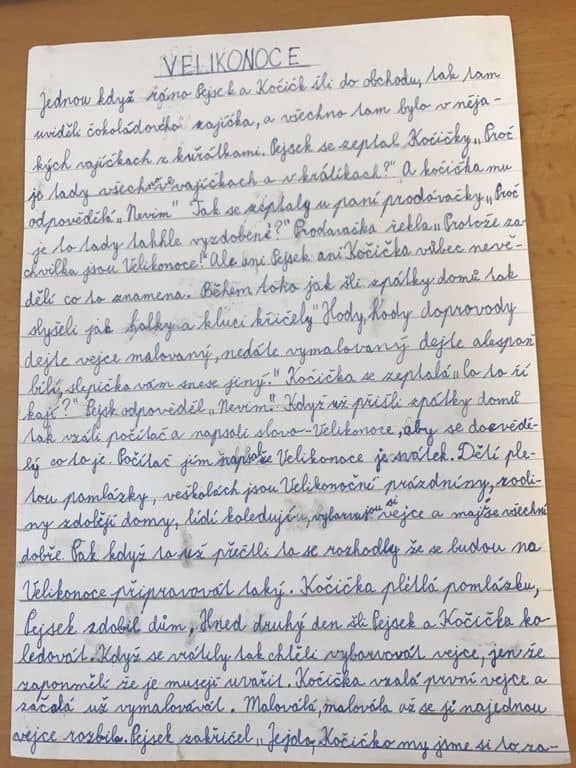 VELIKONOCE
Jednou když ráno Pejsek a Kočičk šli do obchodu, tak tam
uviděli čokoládového zajíčka, a všechno tam bylo v něja-
kých vajíčkach z kuřátkami. Pejsek se zeptal Kočičky „Proč
je tady všechno ve vajíčkach a v králikach?" A kočička mu
odpověděla „Nevim" Tak se zeptaly u paní prodávačky „Proč
je to tady takhle vyzdobené?" Prodavačka řekla „Protože za-
chvilka jsou Velikonoce!" Ale ani Pejsek ani Kočička vůbec nevě-
děli co to znamena. Během toho jak šli zpátky domů tak
slyšeli jak holky a kluci křičely "Hody, hody doprovody
dejte vejce malovaný, nedáte vymalovaný dejte alespoň
bílí, slepička vám snese jiný." Kočička se zeptalá „Co to ří
kají?" Pejsk odpověděl „Nevim". Když už přišli zpátky domů
tak vzáli počítač a napsali slovo-Velikonoce, aby se dozvědě-
lý co to je. Počítač jim napsal že Velikonoce je svátek. Dětí ple-
tou pomlázky, veškolách jsou Velikonoční prázdniny, rodi-
ny zdobějí domy, lídí koledují, vybarvujou si vejce a mají se všichni
dobře. Pak když to už přečtli to se rozhodly že se budou na
Velikonoce připravovát taký. Kočička plétla pomlázku,
Pejsek zdobil dům, Hned druhý den šli Pejsek a Kočička ko-
ledovát. Když se vrátily tak chtěli vybarvovát vejce, jen že
zapomněli že je musejí uvařit. Kočička vzalá první vejce a
začalá už vymalovávát. Malovála, malovála až se ji najednou
vejce rozbilo. Pejsek zakřičel „Jejda, Kočičko my jsme si to za-